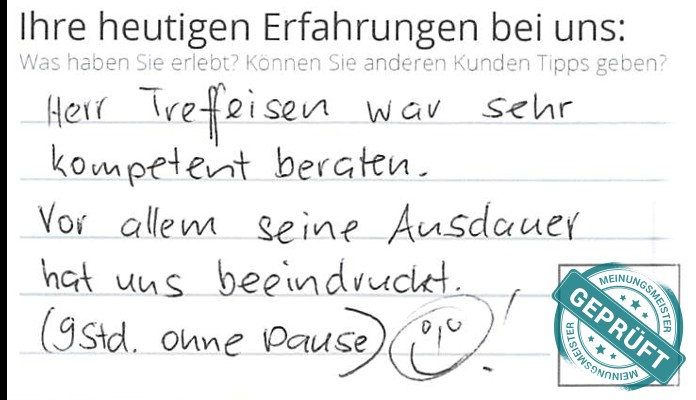 Ihre heutigen Erfahrungen bei uns:
Was haben Sie erlebt? Können Sie anderen Kunden Tipps geben?
Herr Treffeisen war sehr
kompetent beraten.
Vor allem seine Ausdauer
hat uns beeindruckt.
(9Std. ohne Pause) !
MEINUNGSMEISTER
GEPRÜFT
MEINUNGSMEISTER